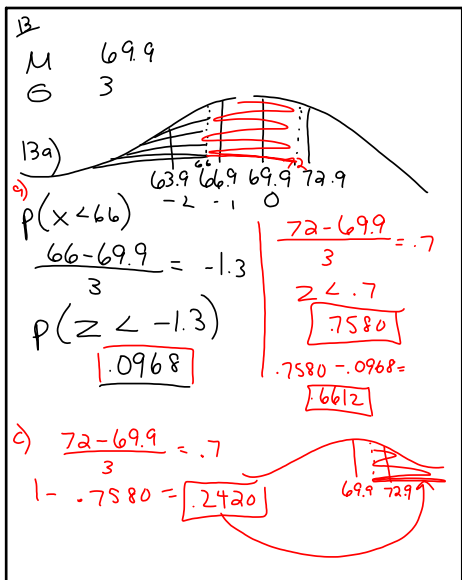 13
M 69.9
σ 3
13a)
66 72
63.9 66.9 69.9 72.9
-2 -1 0
a)
P(x<66)
66-69.9 / 3 = -1.3
P(Z < -1.3)
.0968
72-69.9 / 3 = .7
Z < .7
.7580
.7580 - .0968 =
.6612
c) 72-69.9 / 3 = .7
1- .7580 = .2420
69.9 72.9